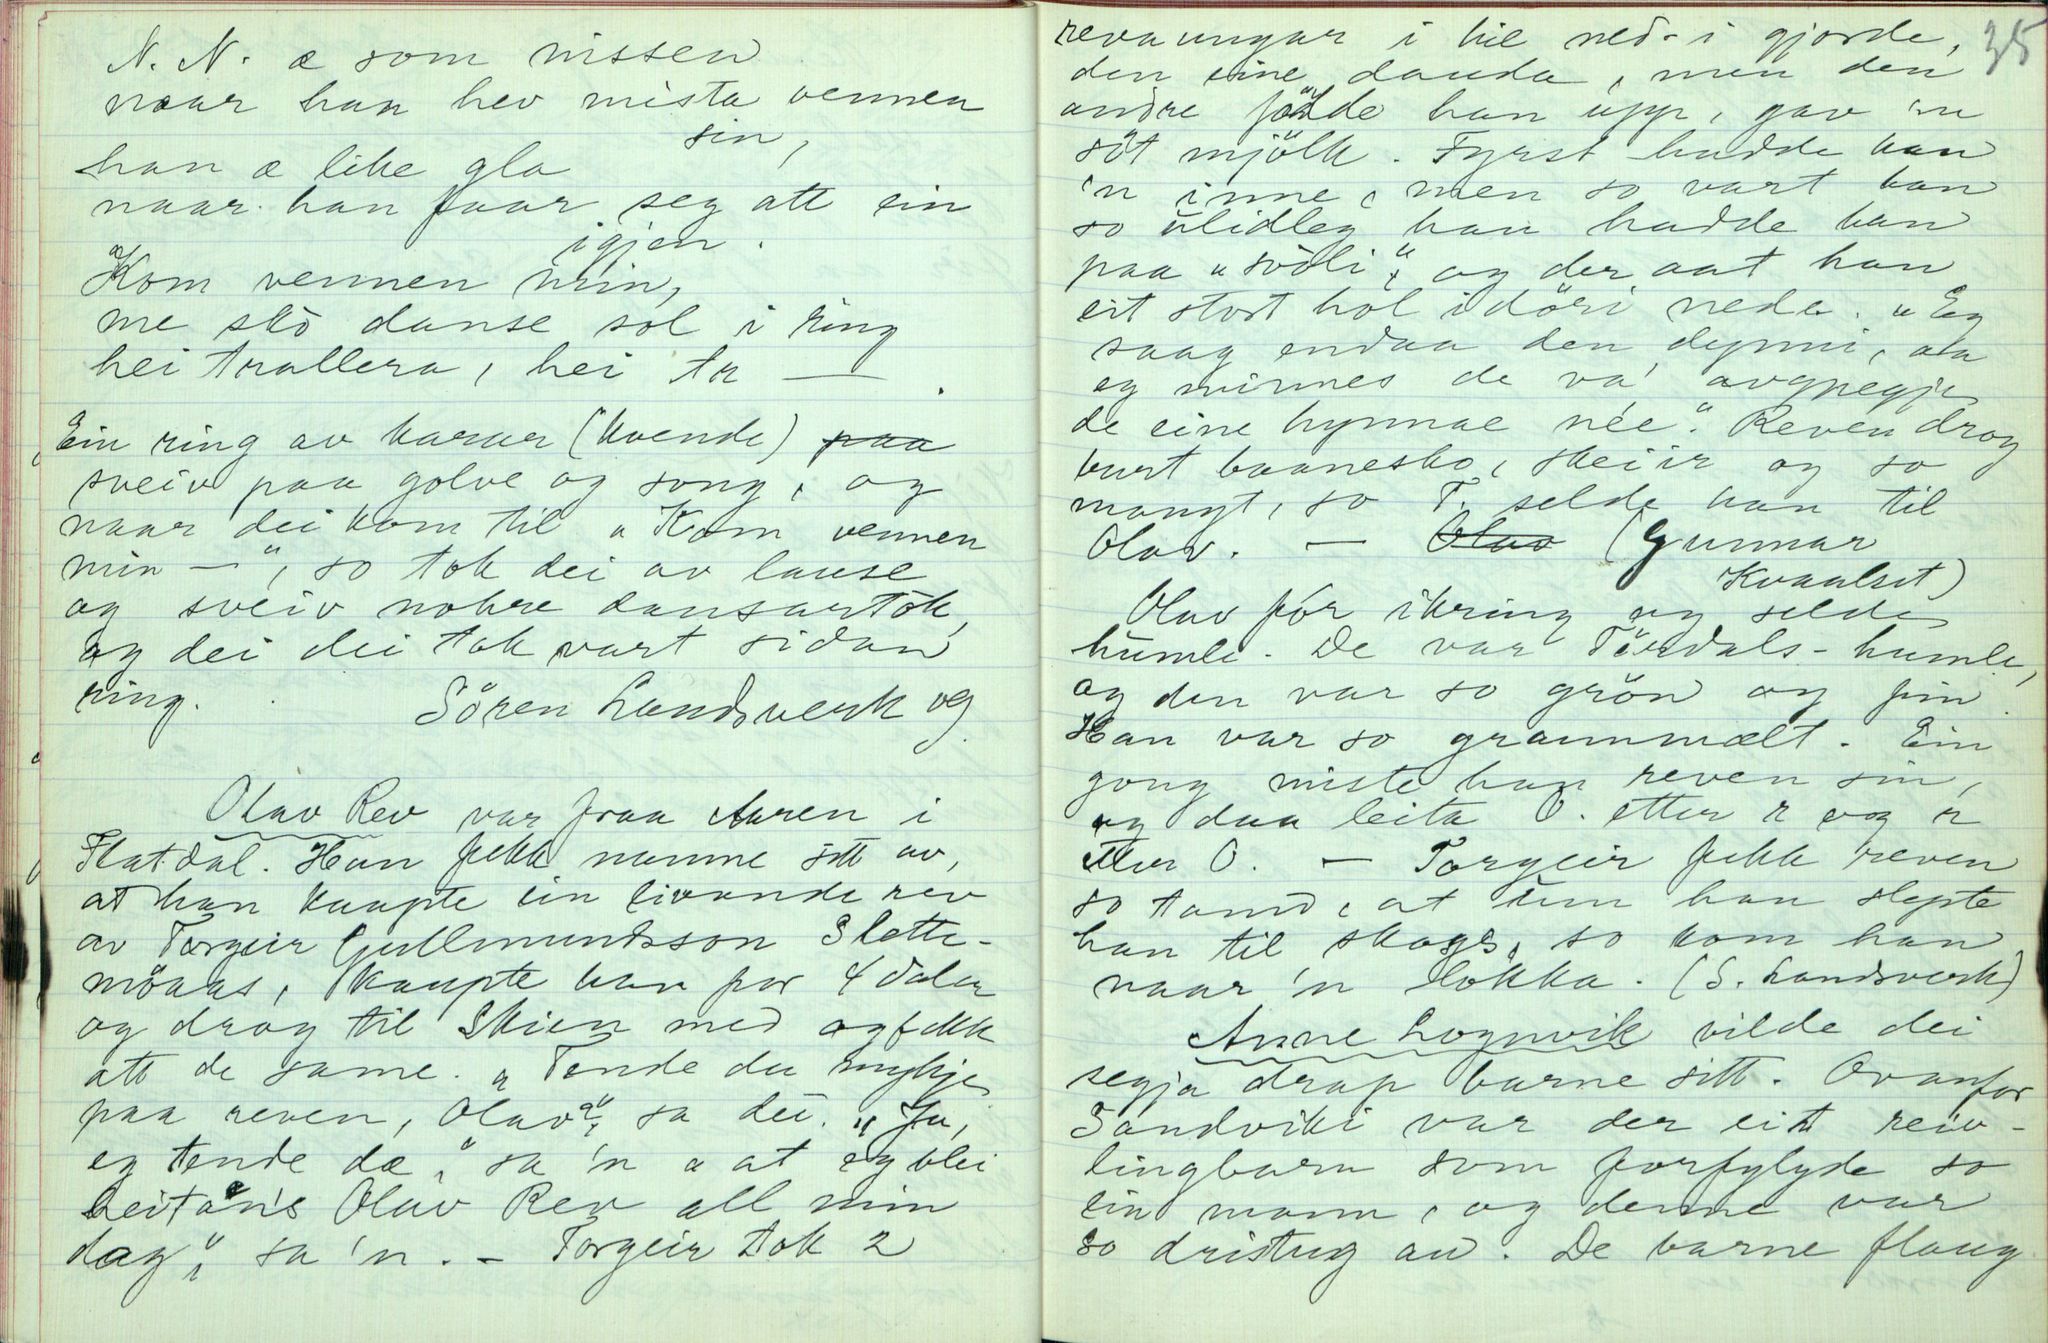 N. N. æ som nissen
naar han hev mista vennen
sin,
han æ like gla
naar han faar seg att ein
igjen.
Kom vennen min,
me sko danse sol i ring
hei trallera, hei tr —.
Ein ring av karar (kvende) paa
sveiv paa golve og song, og
naar dei kom til „Kom vennen
min —", so tok dei av lause
og sveiv nokre dansartök,
og dei dei tok vart sidan
ring. Sören Landsverk og
Olav Rev var fraa Aaren i
Flatdal. Han fekk namne sitt av,
at han kaupte ein livande rev
av Torgeir Gullmundsson Slette-
möaas, kaupte han for 4 dalar
og drog til Skien med og fekk
att de same. „Tende du mykje
paa reven, Olav?" sa dei. „Ja,
eg tende dæ," sa 'n „at eg blei
heitan's Olav Rev all min
dag," sa 'n. – Torgeir tok 2
35
revaungar i hie ned-i gjorde,
den eine dauda, men den
andre födde han upp, gav 'n
söt mjölk. Fyrst hadde han
'n inne, men so vart han
so ulidleg han hadde han
paa „svoli", og der aat han
eit stort hol i döri nede. „Eg
saag endaa den dynni, aa
eg minnes de va'
de eine hynnae née." Reven drog
burt baanesko, skeiir og so
mangt, so T. selde han til
Olav. — Olav (Gunnar
Kvaalset)
Olav fór ikring og selde
humle. De var Tördals-humle,
og den var so grön og fin.
Han var so grannmælt. Ein
gong miste han reven sin,
og daa leita O. etter r og r
etter O. — Torgeir fekk reven
so tamd, at um han slepte
han til skogs, so kom han
naar 'n lokka. (S. Landsverk)
Anne Lognvik vilde dei
segja drap barne sitt. Ovanfor
Sandviki var der eit reiv-
lingbarn som forfylgde so
ein mann, og denne var
so dristug av. De barne flaug